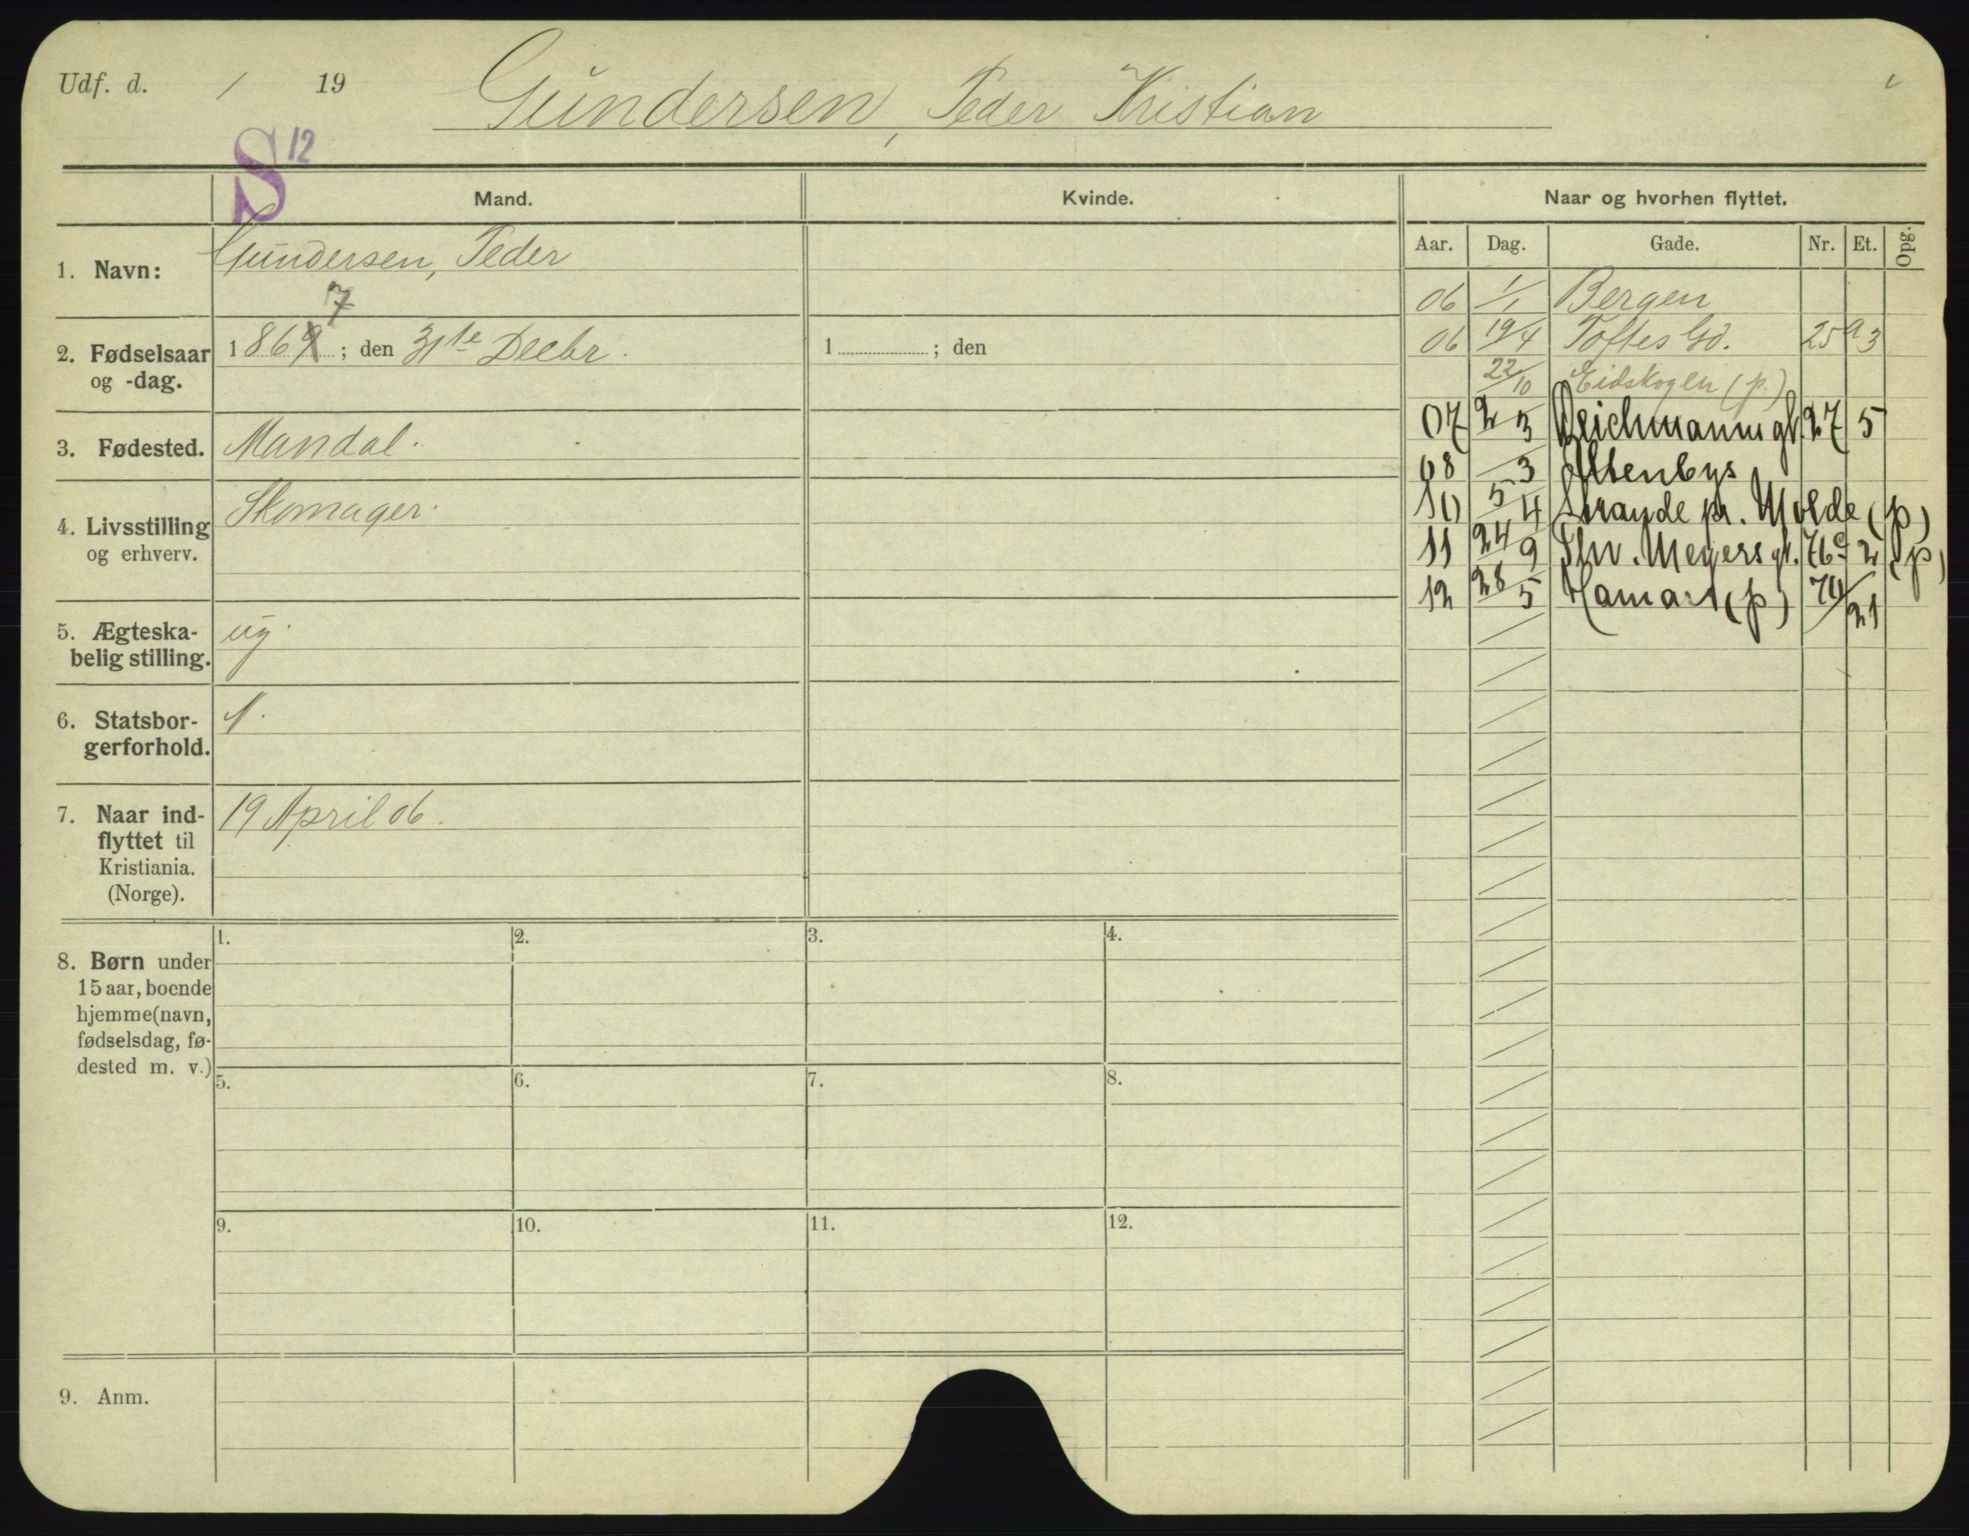 Udf. d. / 19
Gundersen, Peder Kristian
S 12
Mand.
Kvinde.
Naar og hvorhen flyttet.
Aar. Dag. Gade. Nr. Et. Opg.
1. Navn: Gundersen, Peder
06 1/1 Bergen
7
2. Fødselsaar og -dag. 1869; den 31te Decbr.
1 ; den
06 19/4 Toftes Gd. 25a 3
22/10 Eidskogen (p.)
07 2/3 Deichmannsgt. 27 5
3. Fødested. Mandal.
08 /3 Altenbys
10 5/4 Strande pr. Molde (p)
4. Livsstilling og erhverv. Skomager.
11 24/9 Thv. Meyers gt. 76c 2 (p)
12 28/5 Hamar (p) 70/21
5. Ægteska-
belig stilling. ug.
6. Statsbor-
gerforhold. N.
7. Naar ind-
flyttet til
Kristiania.
(Norge).
19 April 06.
8. Børn under
15 aar, boende
hjemme (navn,
fødselsdag, fø-
dested m. v.)
1. 2. 3. 4.
5. 6. 7. 8.
9. 10. 11. 12.
9. Anm.